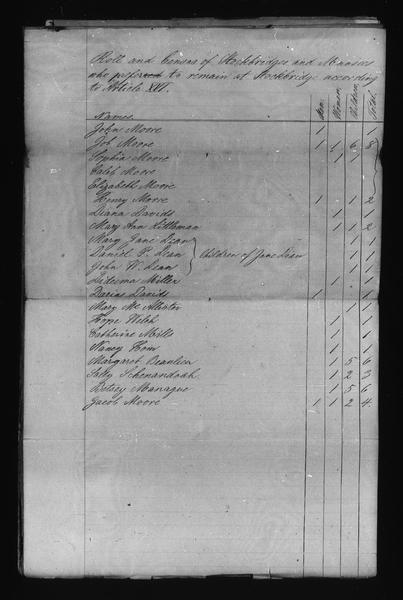 Roll and Census of Stockbridges and Munsees
who preferred to remain at Stockbridge according
to Article XVI.
Names. Men. Women. Children. Total.
John Moore 1 1
Job Moore 1 1 6 8
Sophia Moore 1 1
Caleb Moore
Elizabeth Moore
Henry Moore 1 1 2
Diana Davids 1 1
Mary Ann Littleman 1 1 2
Mary Jane Dean 1 1
Daniel P. Dean } Children of Jane Dean 1 1
John W. Dean 1 1
Miller 1 1
Darius Davids 1 1
Mary Mc Allister 1 1
Hope Welch 1 1
Catherine Mills 1 1
Nancy Hom 1 1
Margaret Beaulieu 1 5 6
Sally Schenandoah 1 2 3
Betsey Manague 1 5 6
Jacob Moore 1 1 2 4